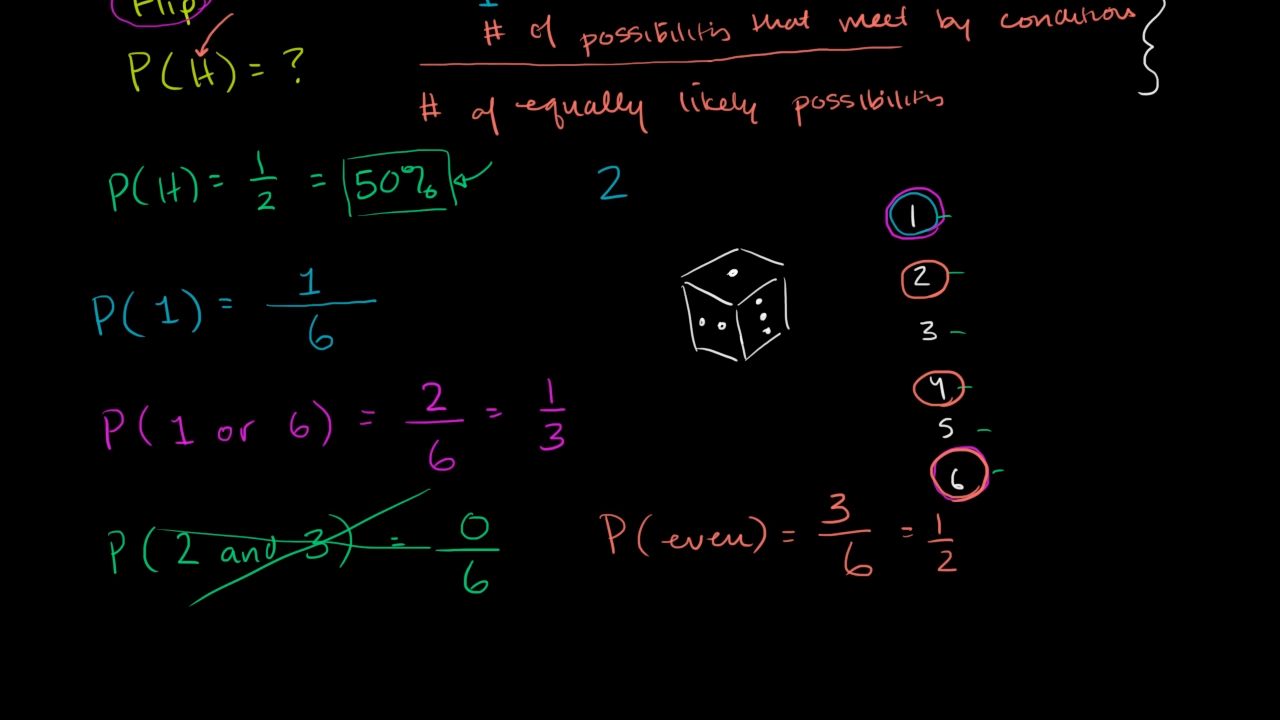 Flip
# of possibilities that meet by conditions
P(H) = ?
# of equally likely possibilities
P(H) = 1/2 = 50%
2
1
2
3
4
5
6
P(1) = 1/6
P(1 or 6) = 2/6 = 1/3
P(2 and 3) = 0/6
P(even) = 3/6 = 1/2